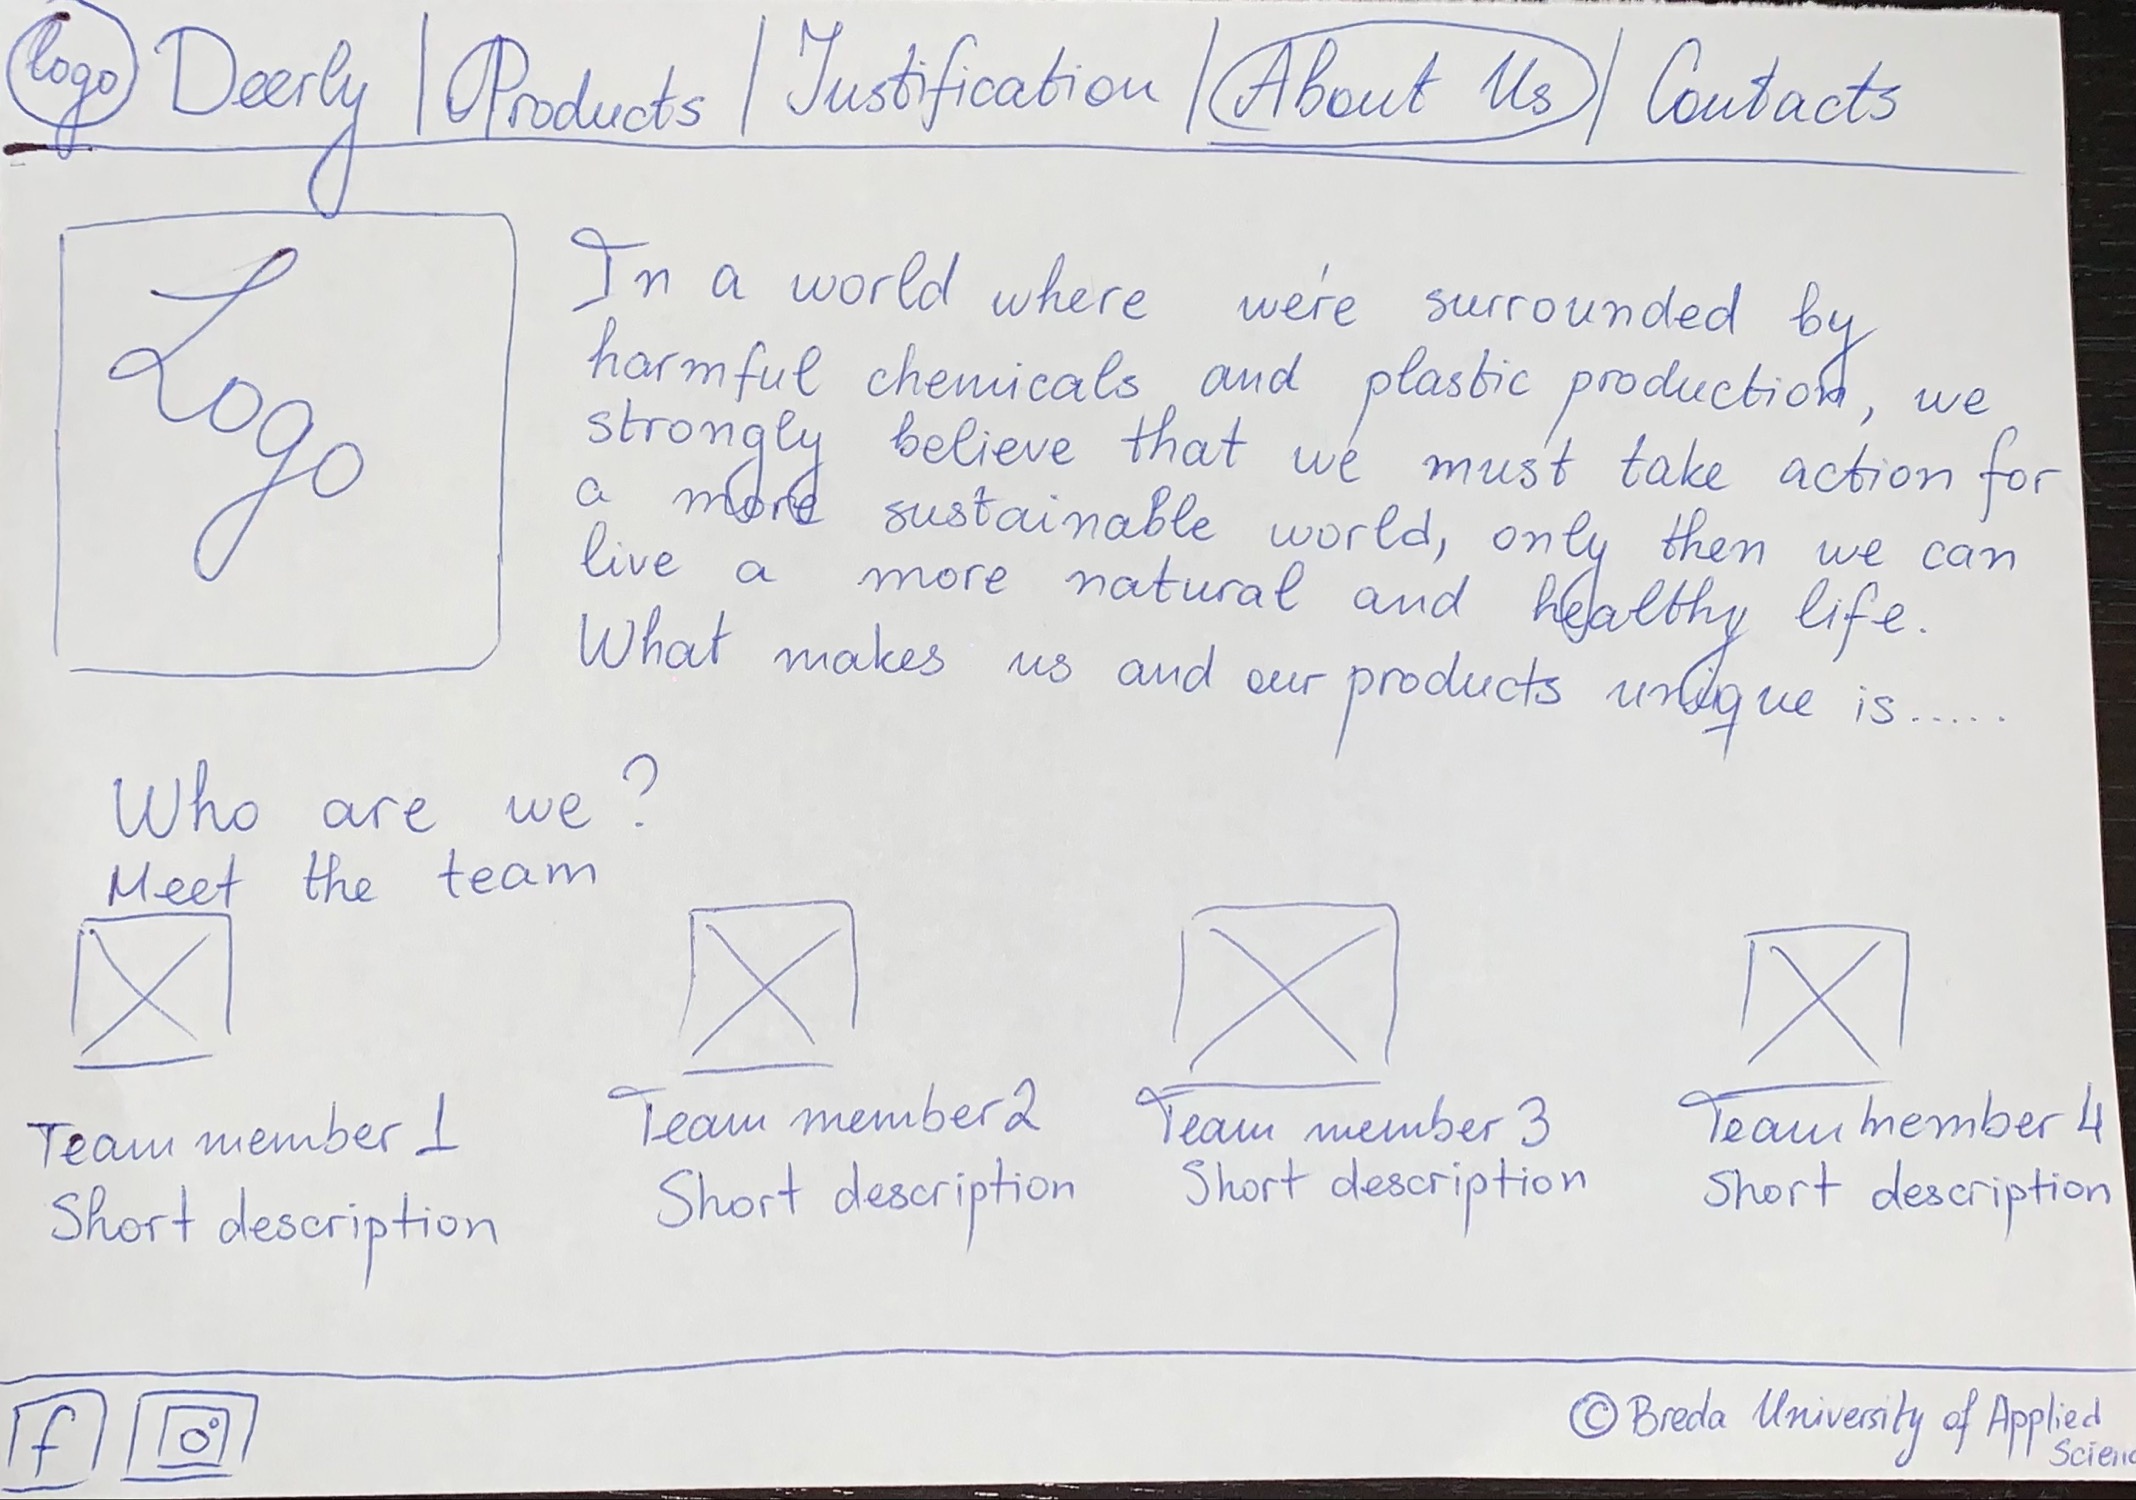 logo Deerly | Products | Justification | About Us | Contacts
Logo
In a world where we're surrounded by
harmful chemicals and plastic production, we
strongly believe that we must take action for
a more sustainable world, only then we can
live a more natural and healthy life.
What makes us and our products unique is.....
Who are we?
Meet the team
Team member 1
Short description
Team member 2
Short description
Team member 3
Short description
Team member 4
Short description
f
© Breda University of Applied
Scienc